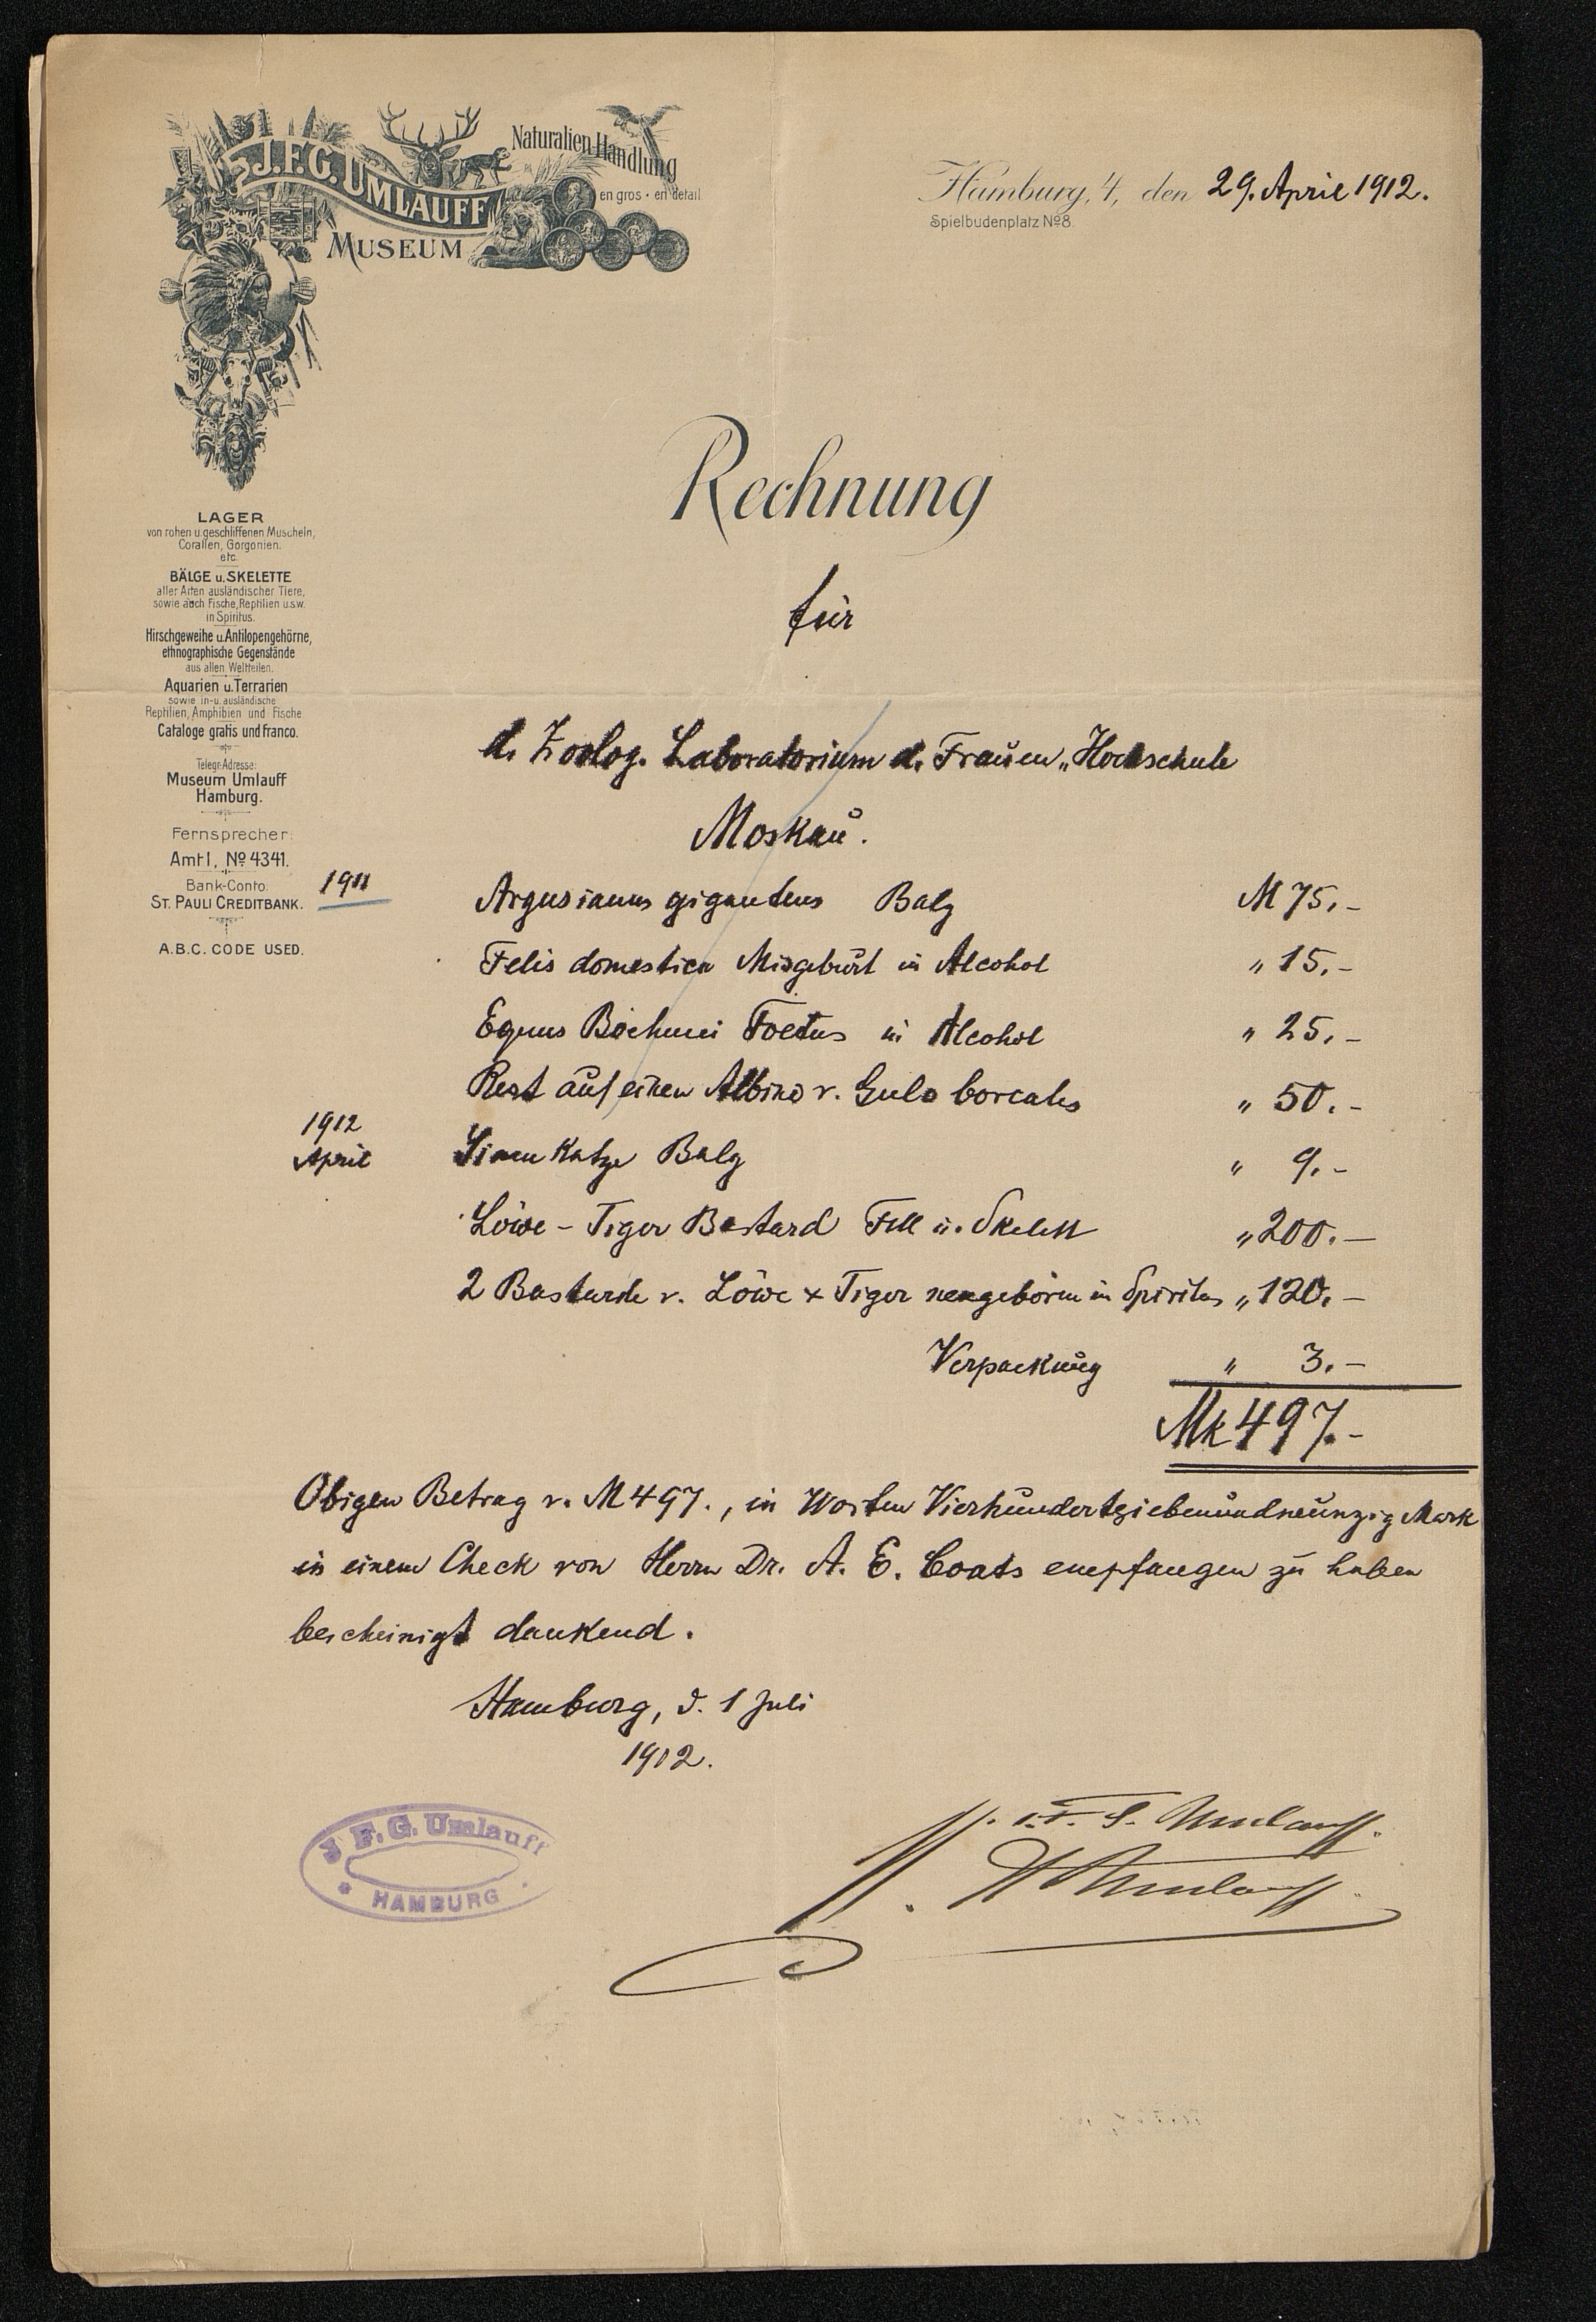 J.F.G. UMLAUFF
Naturalien-Handlung
en gros • en detail
MUSEUM
Hamburg, 4, den 29. April 1912.
Spielbudenplatz No 8.
Rechnung
für
LAGER
von rohen u. geschliffenen Muscheln,
Corallen, Gorgonien.
etc.
BÄLGE u. SKELETTE
aller Arten ausländischer Tiere,
sowie auch Fische, Reptilien u.s.w.
in Spiritus.
Hirschgeweihe u. Antilopengehörne,
ethnographische Gegenstände
aus allen Weltteilen.
Aquarien u. Terrarien
sowie in- u. ausländische
Reptilien, Amphibien und Fische
Cataloge gratis und franco.
Telegr. Adresse:
Museum Umlauff
Hamburg.
Fernsprecher:
Amt I, No 4341.
Bank-Conto:
ST. PAULI CREDITBANK.
A.B.C. CODE USED.
d. Zoolog. Laboratorium d. Frauen „Hochschule
Moskau.
1911 Argusianus giganteus Balg M 75.-
Felis domestica Misgeburt in Alcohol " 15.-
Equus Böehmi Foetus in Alcohol " 25.-
Rest auf einen Albino v. Gulo borealis " 50.-
1912
April Siam Katze Balg " 9.-
Löwe - Tiger Bastard Fell u. Skelett " 200.-
2 Bastarde v. Löwe x Tiger neugeboren in Spiritus " 120.-
Verpackung " 3.-
Mk 497.-
Obigen Betrag v. M 497., in Worten Vierhundertsiebenundneunzig Mark
in einem Check von Herrn Dr. A. E. Coats empfangen zu haben
bescheinigt dankend.
Hamburg, d. 1 Juli
1912.
J. F. G. Umlauff
HAMBURG
J. F. G. Umlauff.
Umlauff